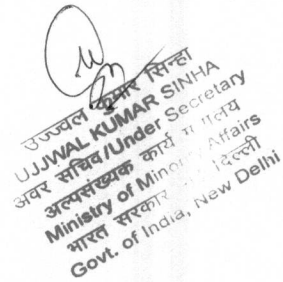 उज्ज्वल कुमार सिन्हा
UJJWAL KUMAR SINHA
अवर सचिव/Under Secretary
अल्पसंख्यक कार्य
Ministry of Minority Affairs
भारत सरकार दिल्ली
Govt. of India, New Delhi